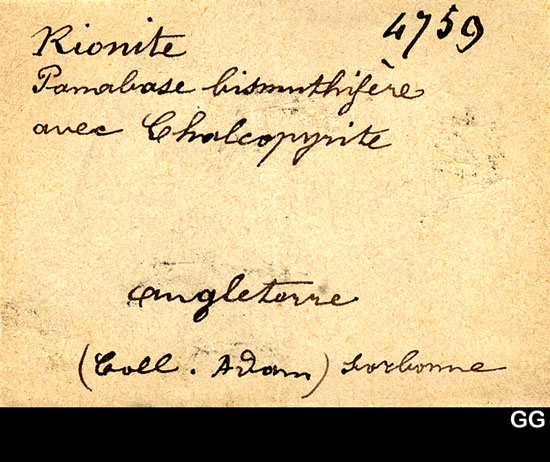 4759
Rionite
Panabase bismuthifère
avec Chalcopyrite
Angleterre
(Coll. Adam) Sorbonne
GG